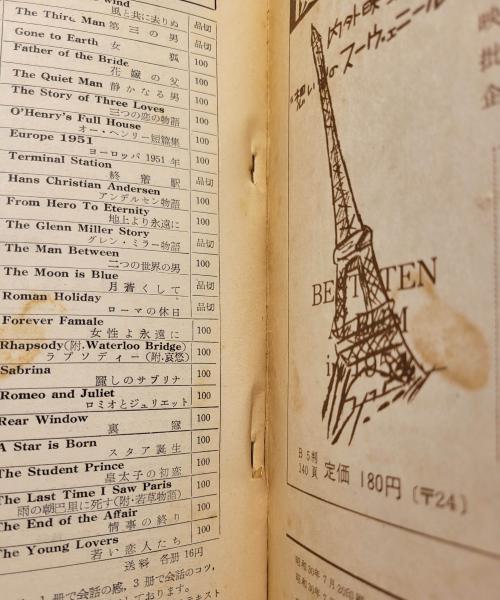 wind
風と共に去りぬ 品切
The Third Man 第三の男 品切
Gone to Earth 女狐 100
Father of the Bride 花嫁の父 100
The Quiet Man 静かなる男 100
The Story of Three Loves 三つの恋の物語 100
O'Henry's Full House オー・ヘンリー短篇集 100
Europe 1951 ヨーロッパ 1951 年 100
Terminal Station 終着駅 品切
Hans Christian Andersen アンデルセン物語 100
From Hero To Eternity 地上より永遠に 100
The Glenn Miller Story グレン・ミラー物語 品切
The Man Between 二つの世界の男 100
The Moon is Blue 月蒼くして 品切
Roman Holiday ローマの休日 品切
Forever Famale 女性よ永遠に 100
Rhapsody(附.Waterloo Bridge) ラプソディー(附.哀愁) 100
Sabrina 麗しのサブリナ 100
Romeo and Juliet ロミオとジュリエット 100
Rear Window 裏窓 100
A Star is Born スタア誕生 100
The Student Prince 皇太子の初恋 100
The Last Time I Saw Paris 雨の朝巴里に死す(附・若草物語) 100
The End of the Affair 情事の終り 100
The Young Lovers 若い恋人たち 100
送料 各冊 16円
1冊で会話の感, 3冊で会話のコツ,
ております。
スーヴェニール
BEST TEN
ALBUM
in 1954
B 5判
140頁 定価 180円 (〒24)
昭和30年7月20日
昭和30年